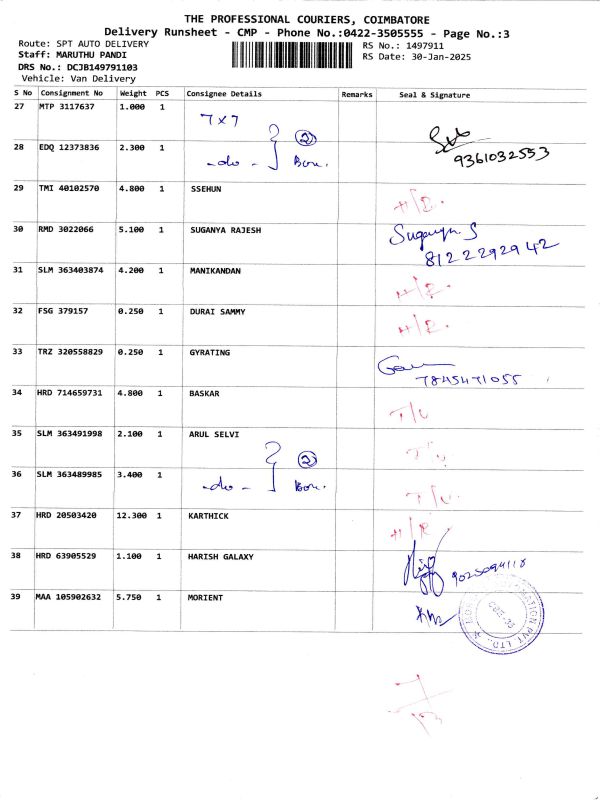 THE PROFESSIONAL COURIERS, COIMBATORE
Delivery Runsheet - CMP - Phone No.:0422-3505555 - Page No.:3
Route: SPT AUTO DELIVERY RS No.: 1497911
Staff: MARUTHU PANDI RS Date: 30-Jan-2025
DRS No.: DCJB149791103
Vehicle: Van Delivery
S No Consignment No Weight PCS Consignee Details Remarks Seal & Signature
27 MTP 3117637 1.000 1 7x7
28 EDQ 12373836 2.300 1 -do- } 2 Box. 9361032553
29 TMI 40102570 4.800 1 SSEHUN
30 RMD 3022066 5.100 1 SUGANYA RAJESH Suganya. S
8122292942
31 SLM 363403874 4.200 1 MANIKANDAN
32 FSG 379157 0.250 1 DURAI SAMMY
33 TRZ 320558829 0.250 1 GYRATING
7845471055
34 HRD 714659731 4.800 1 BASKAR
35 SLM 363491998 2.100 1 ARUL SELVI
36 SLM 363489985 3.400 1 -do- } 2 Box.
37 HRD 20503420 12.300 1 KARTHICK
38 HRD 63905529 1.100 1 HARISH GALAXY 9025094118
39 MAA 105902632 5.750 1 MORIENT